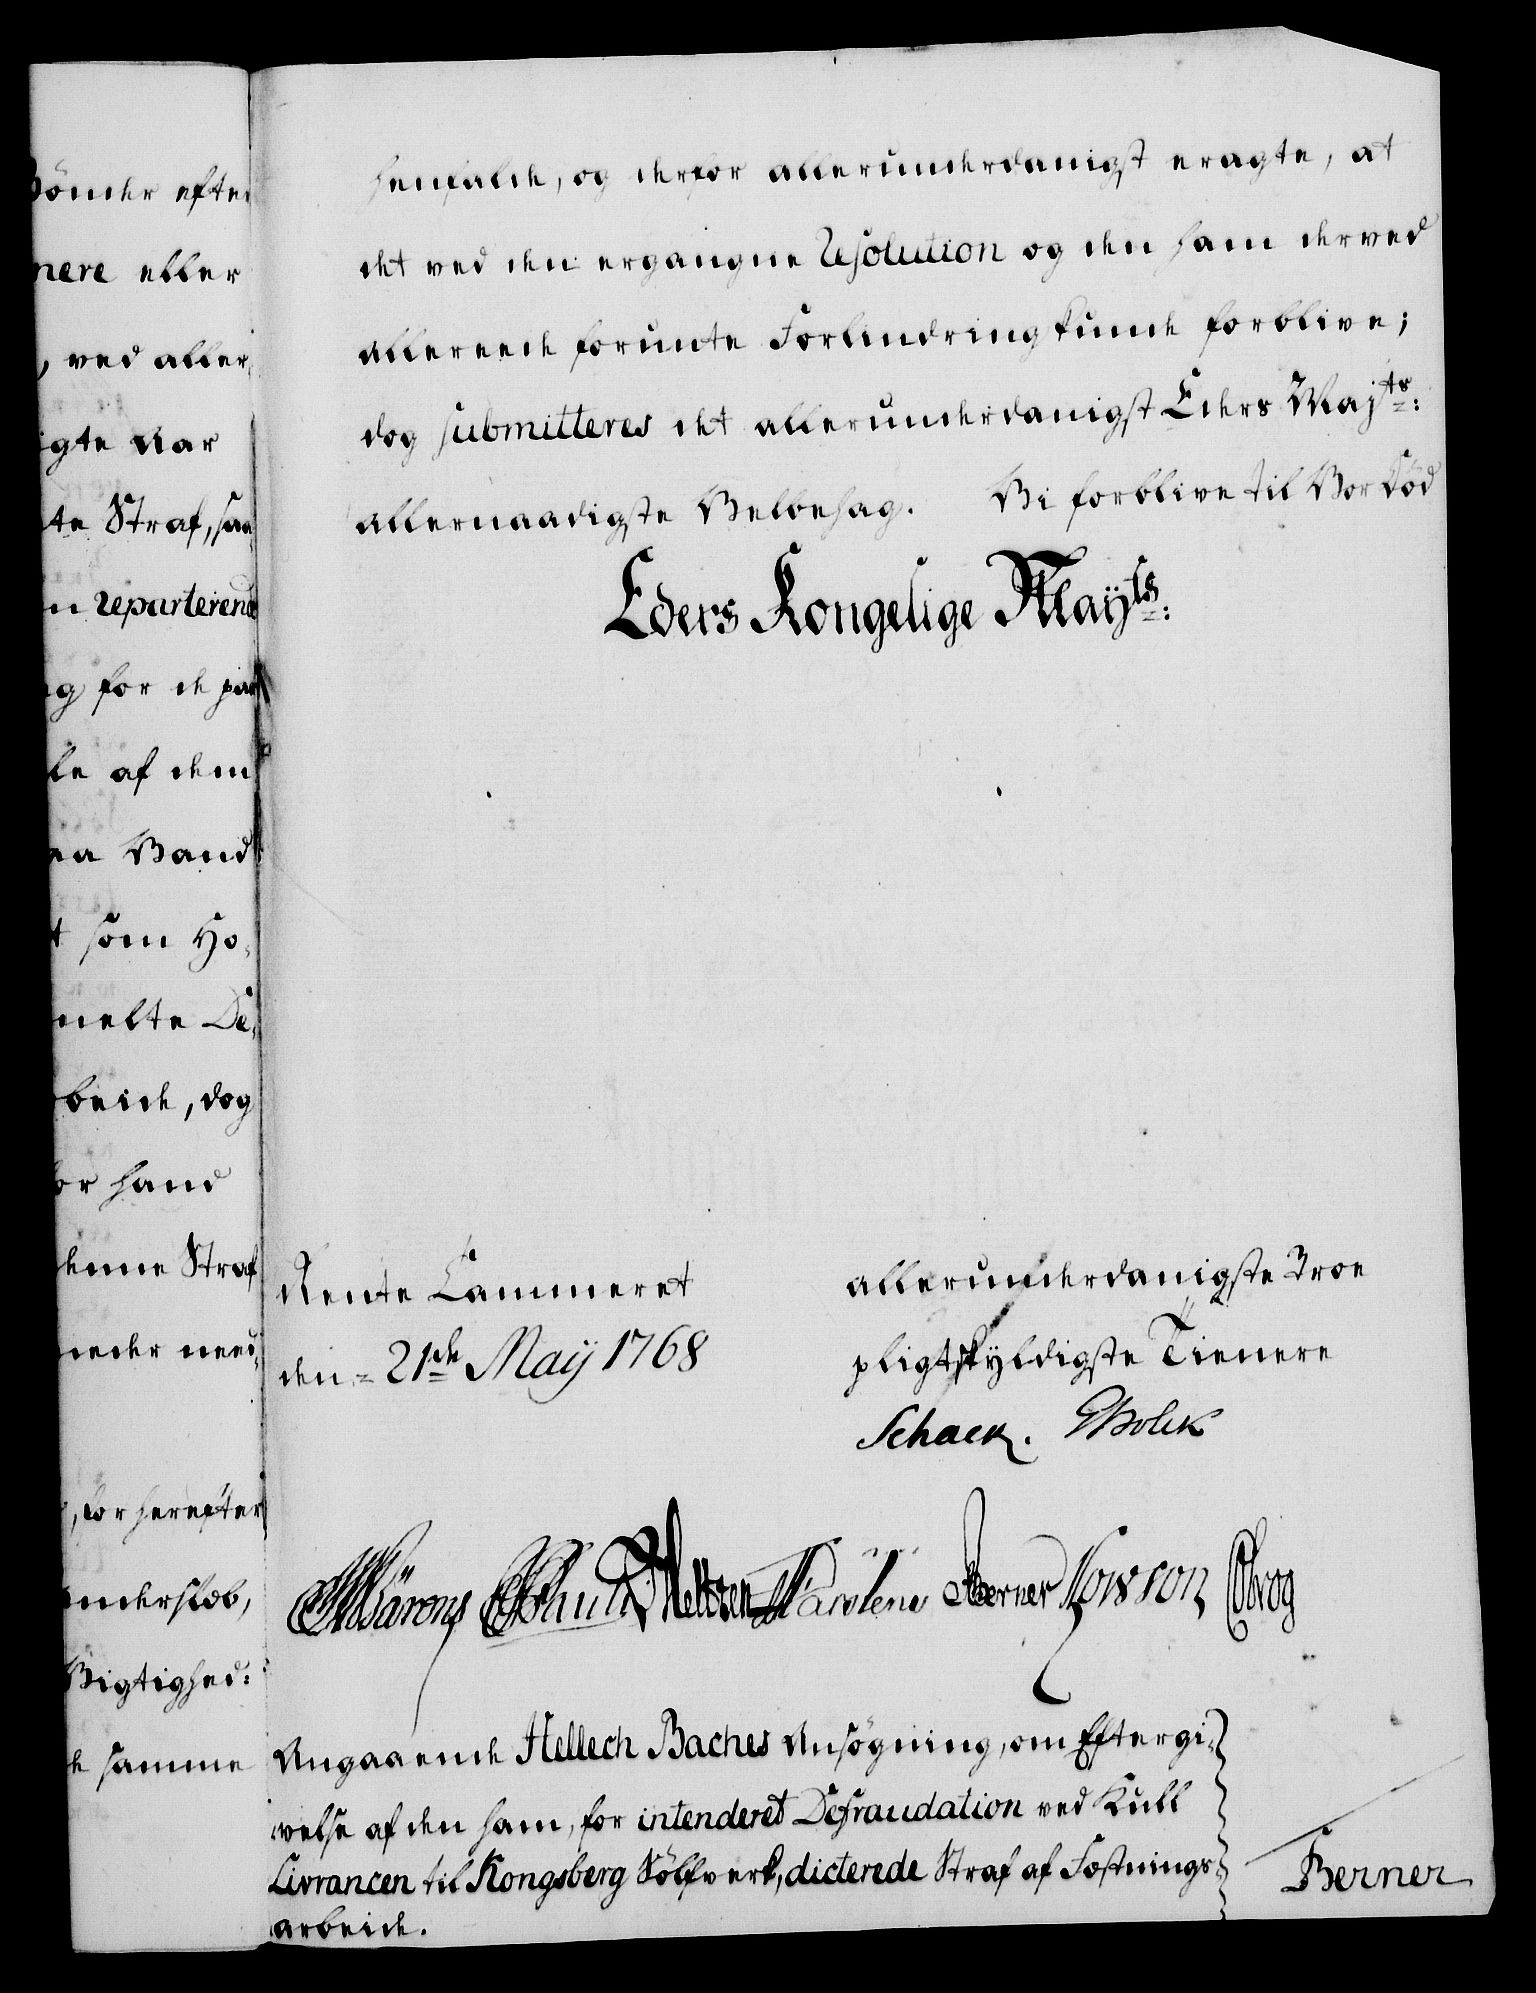 Bönder efter
mere eller
, ved aller
igte Aar
te Straf, saa
n reparterende
og for de paa
le af dem
aa Vand
t som Ho,
melte De,
beide, dog
for hand
denne Straf
neder need,
, for herefter
Vigtighed:
de samme
henfalde, og derfor allerunderdanigst eragte, at
det ved den ergangne Resolution og den ham derved
allereede forunte Forlindring kunde forblive;
dog submitteres det allerunderdanigst Eders Majts:
allernaadigste Velbehag. Vi forblive til Vor Död
Eders Kongelige Mayts:
Rente Cammeret
den 21de Maij 1768
allerunderdanigste Troe
pligtskyldigste Tienere
Schack. GHolck
Meltzen Berner Kowson
Angaaende Hellech Baches Ansögning, om Eftergi,
velse af den ham, for intenderet Defraudation ved Kull
Livrancen til Kongsberg Sölfverk, dicterede Straf af Fæstnings
arbeide.
Berner